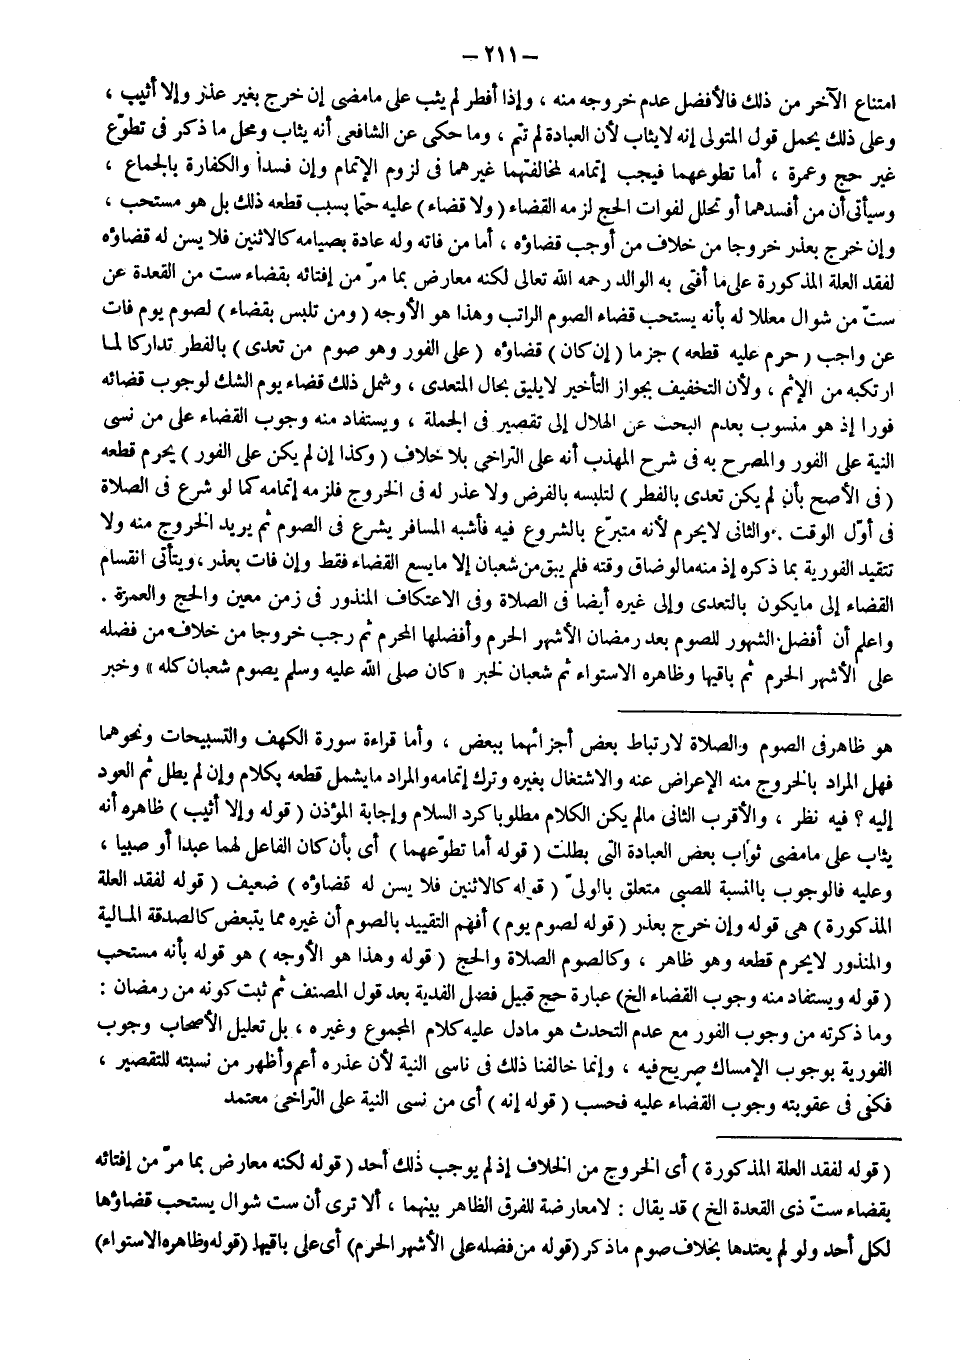 – ٢١١ –
امتناع الآخر من ذلك فالأفضل عدم خروجه منه ، وإذا أفطر لم يثب على مامضى إن خرج بغير عذر وإلا أثيب ،
وعلى ذلك يحمل قول المتولى إنه لايثاب لأن العبادة لم تتم ، وما حكى عن الشافعى أنه يثاب ومحل ما ذكر فى تطوّع
غير حج وعمرة ، أما تطوعهما فيجب إتمامه لمخالفتهما غيرهما فى لزوم الإتمام وإن فسدا والكفارة بالجماع ،
وسيأتى أن من أفسدهما أو تحلل لفوات الحج لزمه القضاء ( ولا قضاء ) عليه حتما بسبب قطعه ذلك بل هو مستحب ،
وإن خرج بعذر خروجا من خلاف من أوجب قضاؤه ، أما من فاته وله عادة بصيامه كالاثنين فلا يسن له قضاؤه
لفقد العلة المذكورة على ما أفتى به الوالد رحمه الله تعالى لكنه معارض بما مرّ من إفتائه بقضاء ست من القعدة عن
ستّ من شوال معللا له بأنه يستحب قضاء الصوم الراتب وهذا هو الأوجه ( ومن تلبس بقضاء ) لصوم يوم فات
عن واجب ( حرم عليه قطعه ) جزما ( إن كان ) قضاؤه ( على الفور وهو صوم من تعدى ) بالفطر تداركا لما
ارتكبه من الإثم ، ولأن التخفيف بجواز التأخير لايليق بحال المتعدى ، وشمل ذلك قضاء يوم الشك لوجوب قضائه
فورا إذ هو منسوب بعدم البحث عن الهلال إلى تقصير فى الجملة ، ويستفاد منه وجوب القضاء على من نسى
النية على الفور والمصرح به فى شرح المهذب أنه على التراخى بلا خلاف ( وكذا إن لم يكن على الفور ) يحرم قطعه
( فى الأصح بأن لم يكن تعدى بالفطر ) لتلبسه بالفرض ولا عذر له فى الخروج فلزمه إتمامه كما لو شرع فى الصلاة
فى أوّل الوقت . والثانى لايحرم لأنه متبرّع بالشروع فيه فأشبه المسافر يشرع فى الصوم ثم يريد الخروج منه ولا
تتقيد الفورية بما ذكره إذ منه مالو ضاق وقته فلم يبق من شعبان إلا مايسع القضاء فقط وإن فات بعذر ، ويتأتى انقسام
القضاء إلى مايكون بالتعدى وإلى غيره أيضا فى الصلاة وفى الاعتكاف المنذور فى زمن معين والحج والعمرة .
واعلم أن أفضل الشهور للصوم بعد رمضان الأشهر الحرم وأفضلها المحرم ثم رجب خروجا من خلاف من فضله
على الأشهر الحرم ثم باقيها وظاهره الاستواء ثم شعبان لخبر « كان صلى الله عليه وسلم يصوم شعبان كله » وخبر
هو ظاهر فى الصوم والصلاة لارتباط بعض أجزائهما ببعض ، وأما قراءة سورة الكهف والتسبيحات ونحوهما
فهل المراد بالخروج منه الإعراض عنه والاشتغال بغيره وترك إتمامه والمراد مايشمل قطعه بكلام وإن لم يطل ثم العود
إليه ؟ فيه نظر ، والأقرب الثانى مالم يكن الكلام مطلوبا كرد السلام وإجابة المؤذن ( قوله وإلا أثيب ) ظاهره أنه
يثاب على مامضى ثواب بعض العبادة التى بطلت ( قوله أما تطوّعهما ) أى بأن كان الفاعل لهما عبدا أو صبيا ،
وعليه فالوجوب بالنسبة للصبى متعلق بالولىّ ( قوله كالاثنين فلا يسن له قضاؤه ) ضعيف ( قوله لفقد العلة
المذكورة ) هى قوله وإن خرج بعذر ( قوله لصوم يوم ) أفهم التقييد بالصوم أن غيره مما يتبعض كالصدقة المالية
والمنذور لايحرم قطعه وهو ظاهر ، وكالصوم الصلاة والحج ( قوله وهذا هو الأوجه ) هو قوله بأنه مستحب
( قوله ويستفاد منه وجوب القضاء الخ ) عبارة حج قبيل فضل الفدية بعد قول المصنف ثم ثبت كونه من رمضان :
وما ذكرته من وجوب الفور مع عدم التحدث هو مادل عليه كلام المجموع وغيره ، بل تعليل الأصحاب وجوب
الفورية بوجوب الإمساك صريح فيه ، وإنما خالفنا ذلك فى ناسى النية لأن عذره أعم وأظهر من نسبته للتقصير ،
فكفى فى عقوبته وجوب القضاء عليه فحسب ( قوله إنه ) أى من نسى النية على التراخى معتمد
( قوله لفقد العلة المذكورة ) أى الخروج من الخلاف إذ لم يوجب ذلك أحد ( قوله لكنه معارض بما مرّ من إفتائه
بقضاء ستّ ذى القعدة الخ ) قد يقال : لامعارضة للفرق الظاهر بينهما ، ألا ترى أن ست شوال يستحب قضاؤها
لكل أحد ولو لم يعتدها بخلاف صوم ماذكر ( قوله من فضله على الأشهر الحرم ) أى على باقيها ( قوله وظاهره الاستواء )